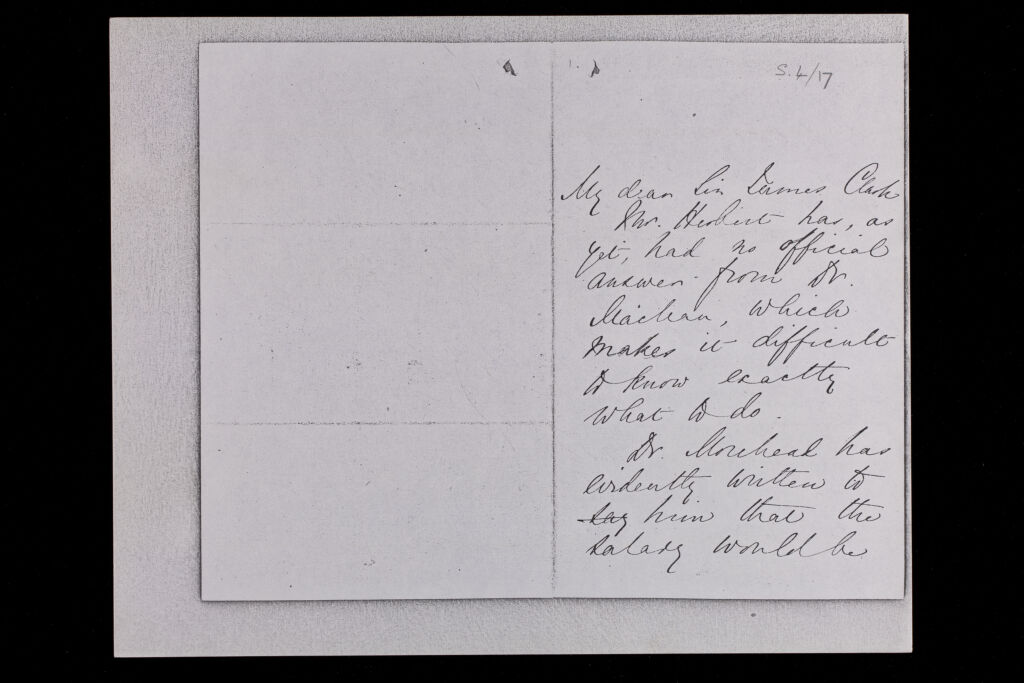 S.4/17
My dear Sir James Clark
Mr. Herbert has, as
yet, had no official
answer from Dr.
Maclean, which
makes it difficult
to know exactly
what to do.
Dr. Morehead has
evidently written to
say him that the
salary would be